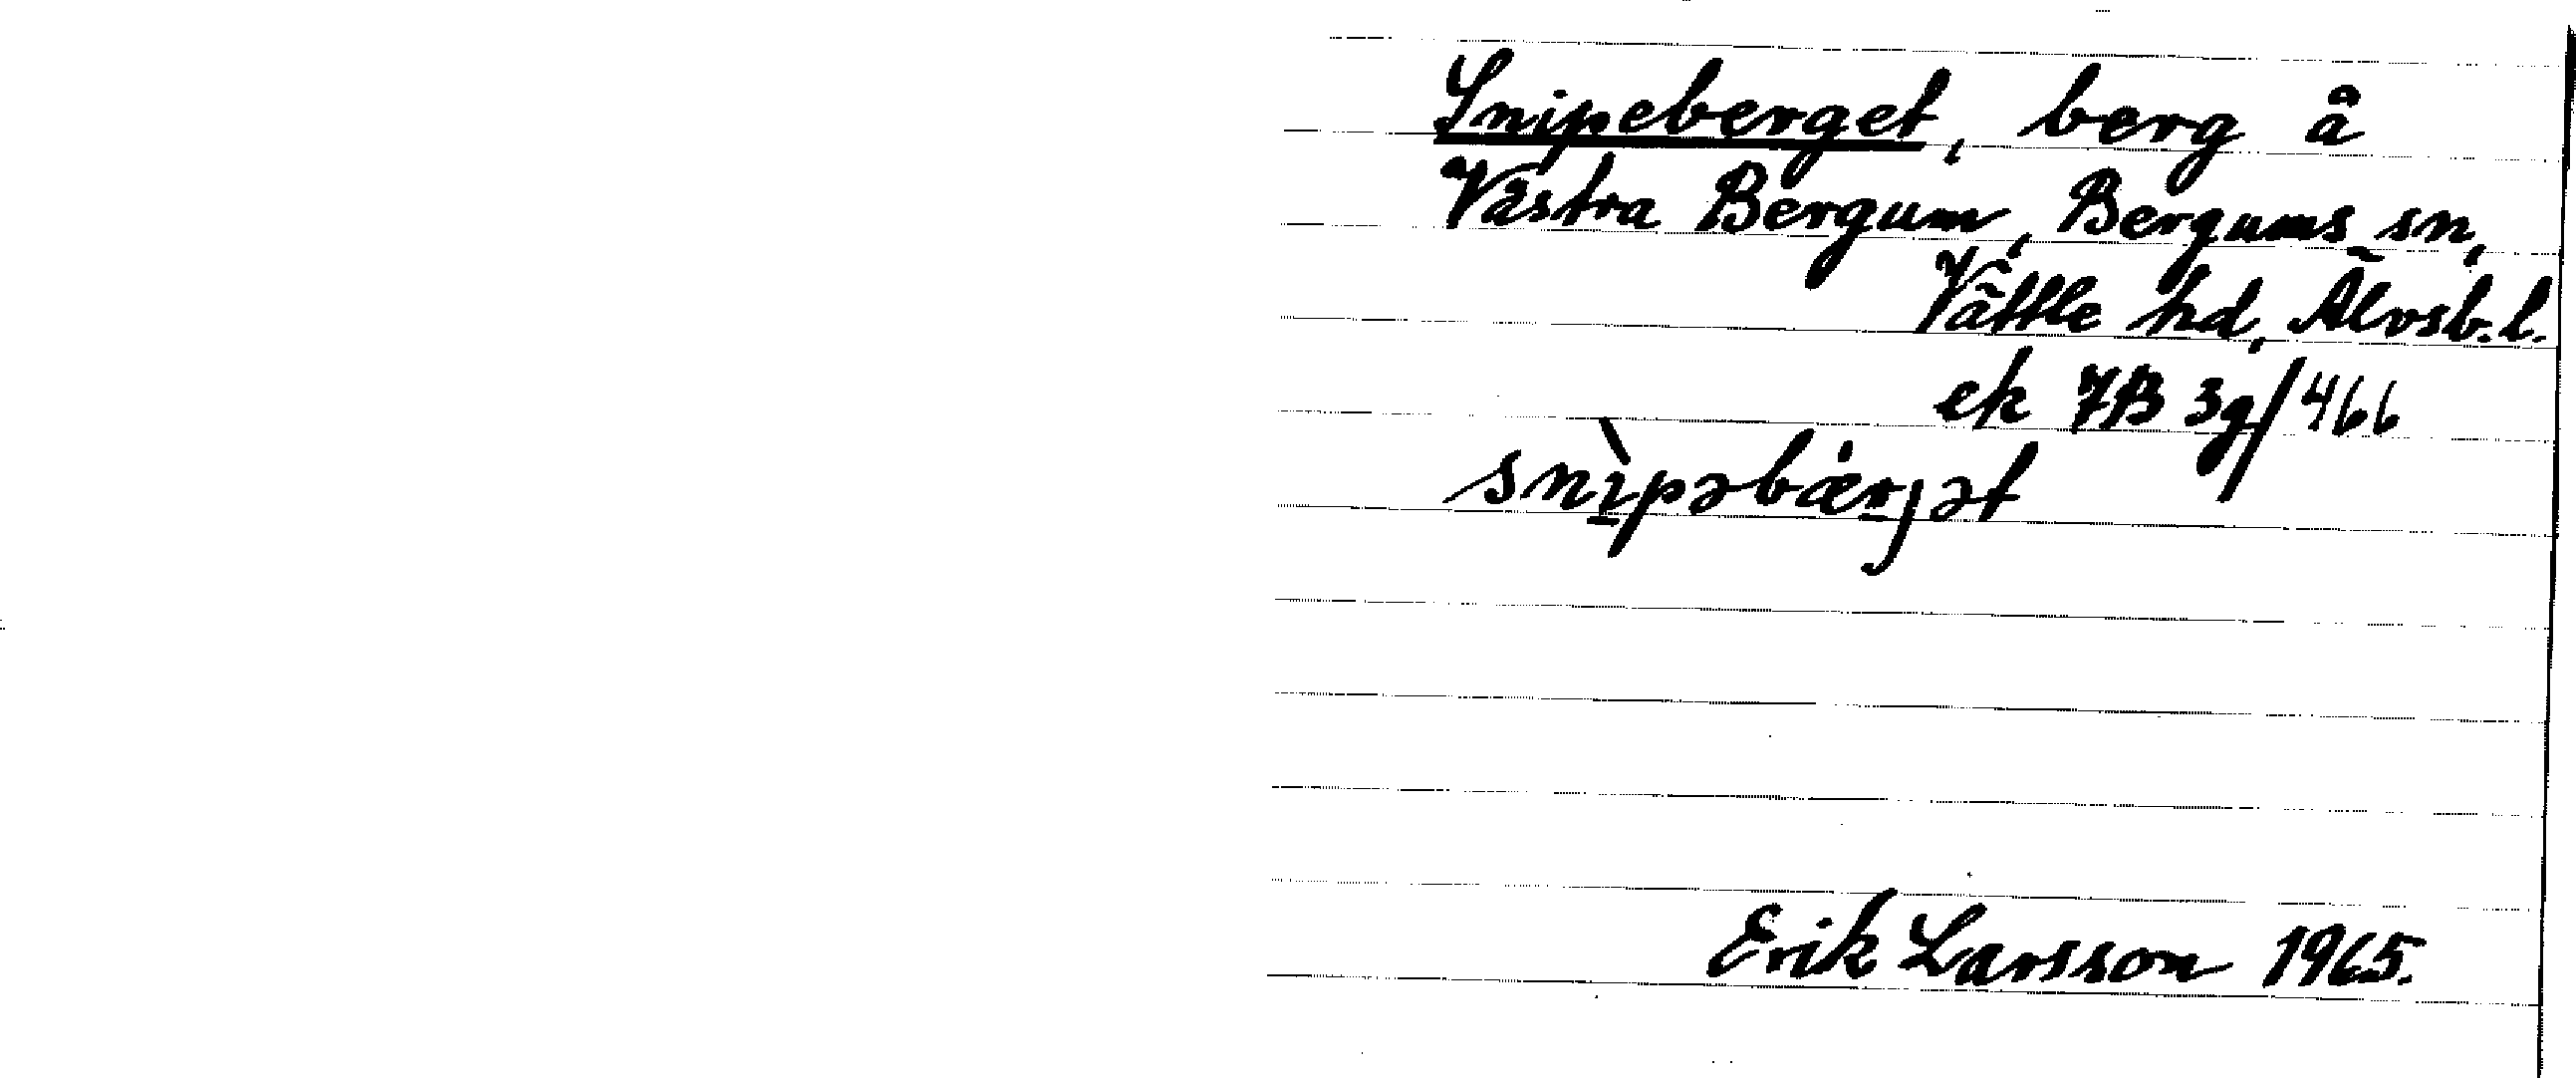 Snipeberget, berg å
Västra Bergum, Bergums sn,
Vättle hd, Älvsb.l.
ek 7B 3g/466
snìpəbærjət
Erik Larsson 1965.